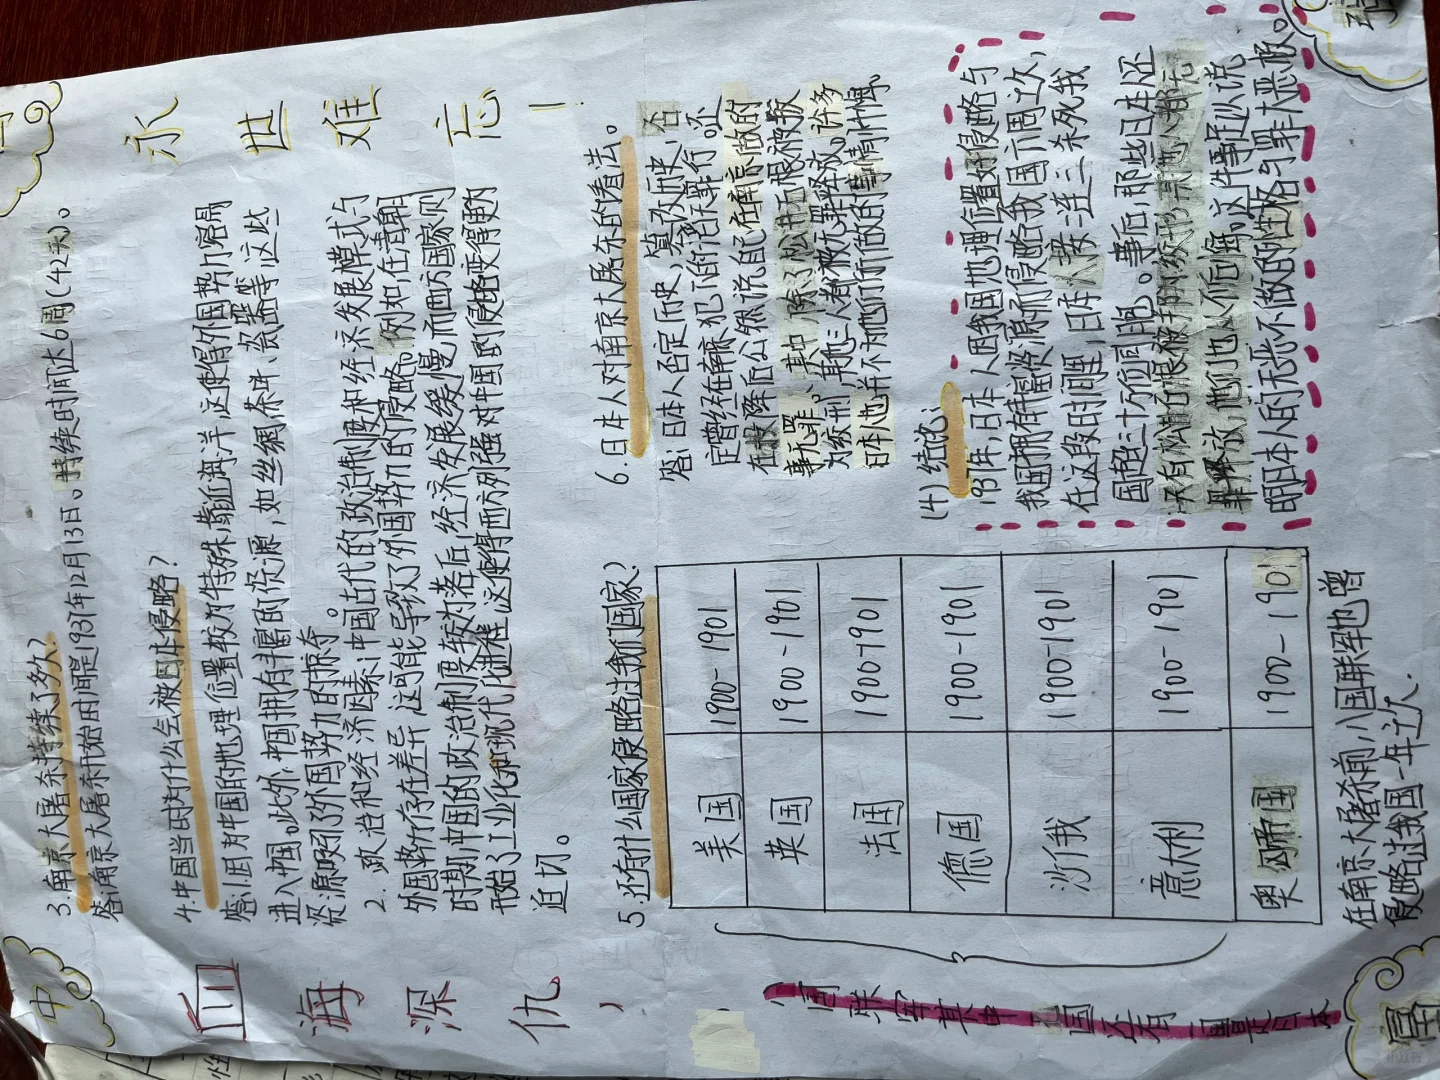 中
血海深仇,
永世难忘!
3.南京大屠杀持续了多久?
答:南京大屠杀开始时间是1937年12月13日。持续时间达6周(42天)。
4.中国当时为什么会被日本侵略?
答:1.因为中国的地理位置较为特殊,靠近海洋,这使得外国势力容易
进入中国。此外,中国拥有丰富的资源,如丝绸、茶叶、瓷器等,这些
资源吸引了外国势力的掠夺。
2.政治和经济因素:中国古代的政治制度和经济发展模式与
外国势力存在差异,这可能导致了外国势力的侵略。例如,在清朝
时期,中国的政治制度较为落后,经济发展缓慢,而西方国家则
开始了工业化和现代化进程,这使得西方列强对中国的侵略变得更为
迫切。
5.还有什么国家侵略过我们国家?
美国 1900-1901
英国 1900-1901
法国 1900-1901
德国 1900-1901
沙俄 1900-1901
意大利 1900-1901
奥匈帝国 1900-1901
八国联军其中七国还有一国是日本
在南京大屠杀前,八国联军也曾
侵略过我国一年之久.
6.日本人对南京大屠杀的看法。
答:日本人否定历史,篡改历史,否
定曾经在南京犯下的滔天罪行。还
在投降后公然说自己在南京做的
事无罪。其中,除了松井石根被判
为绞刑,其他三人都被无罪释放。许多
日本人也并不为他们所做的事情忏悔。
(4)结论:
1937年,日本人因我国地理位置好侵略与
我国拥有丰富资源而侵略我国六周之久,
在这段时间里,日本人接二连三杀死我
国超三十万位同胞。事后,那些日本人还
只有松井石根被判处绞刑,其他人都无
罪释放,他们也不后悔。这件事足以说
明日本人的无恶不做的性格与罪大恶极。
富
强